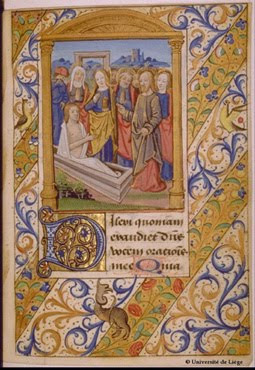 Dilexi quoniam
exaudiet dn̄s
vocem orationis
mee Quia
© Université de Liège